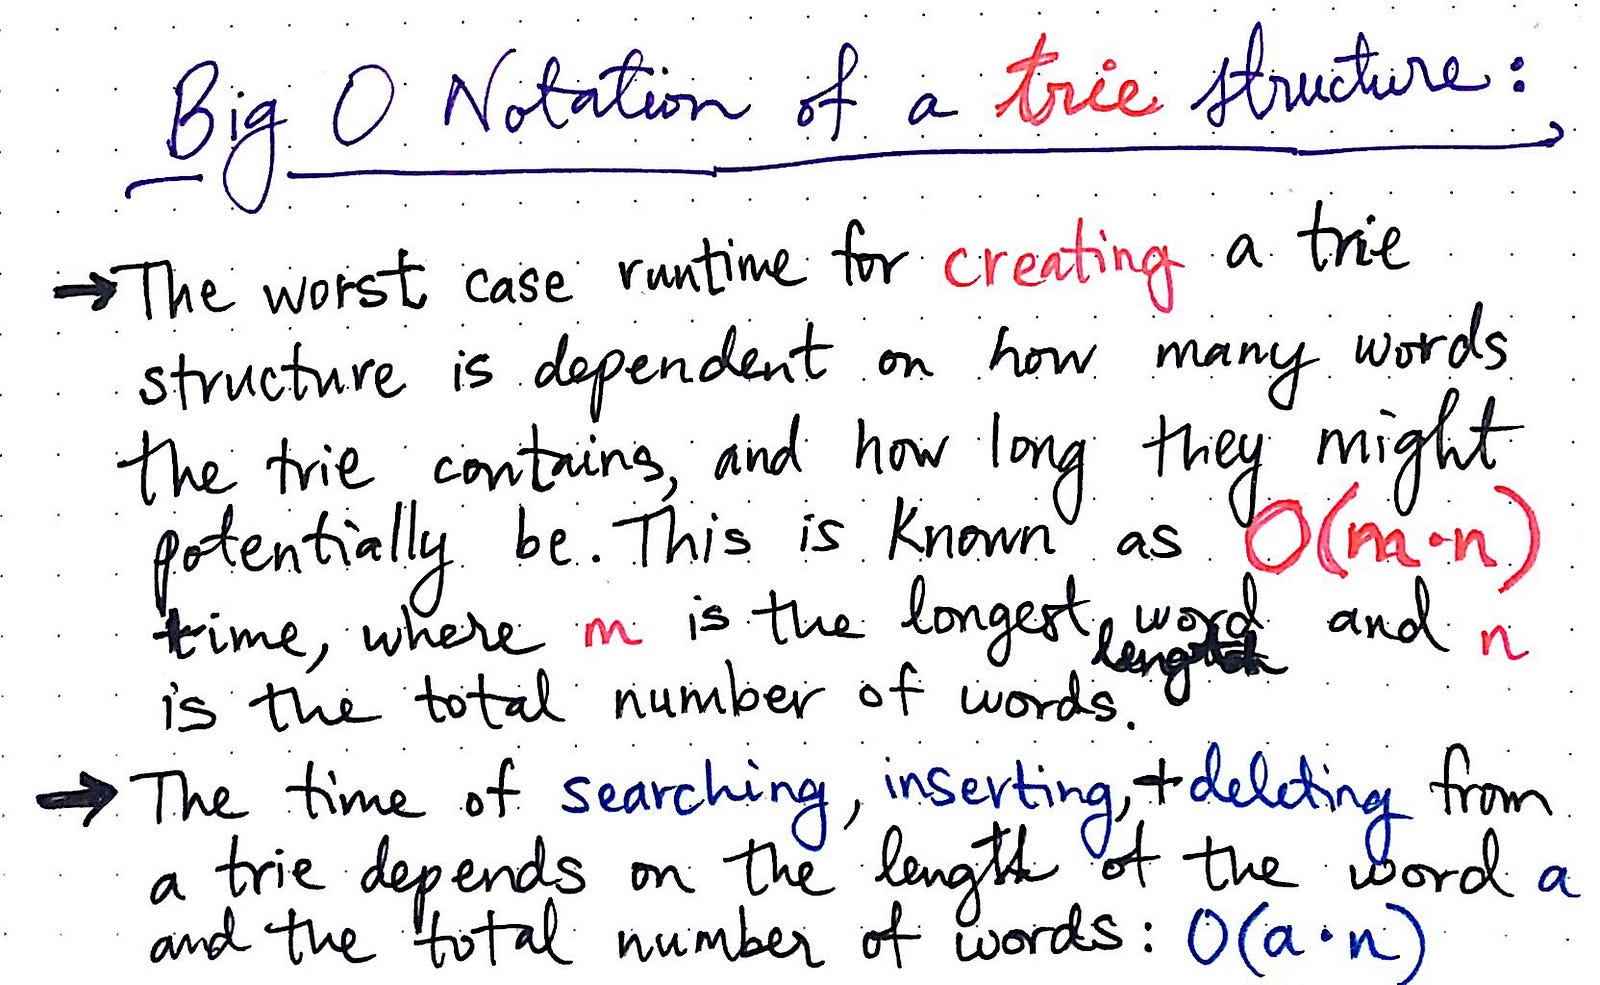 Big O Notation of a trie structure:
→ The worst case runtime for creating a trie
structure is dependent on how many words
the trie contains, and how long they might
potentially be. This is known as O(m·n)
time, where m is the longest word and n
length
is the total number of words.
→ The time of searching, inserting, + deleting from
a trie depends on the length of the word a
and the total number of words: O(a·n)